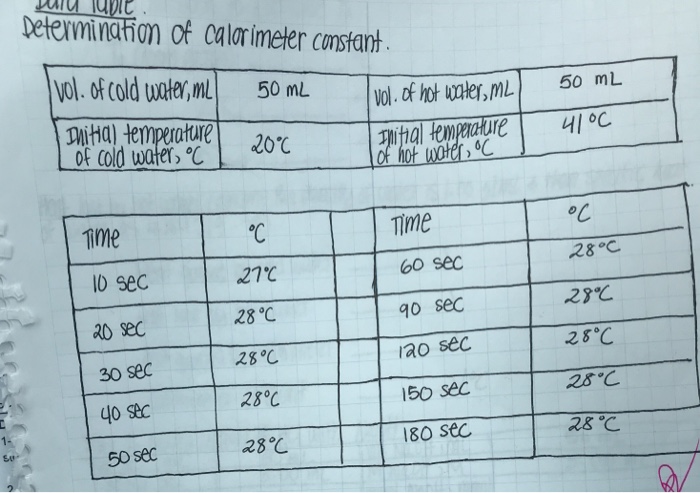 Data Table.
Determination of calorimeter constant.
Vol. of cold water, mL 50 mL Vol. of hot water, mL 50 mL
Initial temperature of cold water, °C 20°C Initial temperature of hot water, °C 41°C
Time °C Time °C
10 sec 27°C 60 sec 28°C
20 sec 28°C 90 sec 28°C
30 sec 28°C 120 sec 28°C
40 sec 28°C 150 sec 28°C
50 sec 28°C 180 sec 28°C